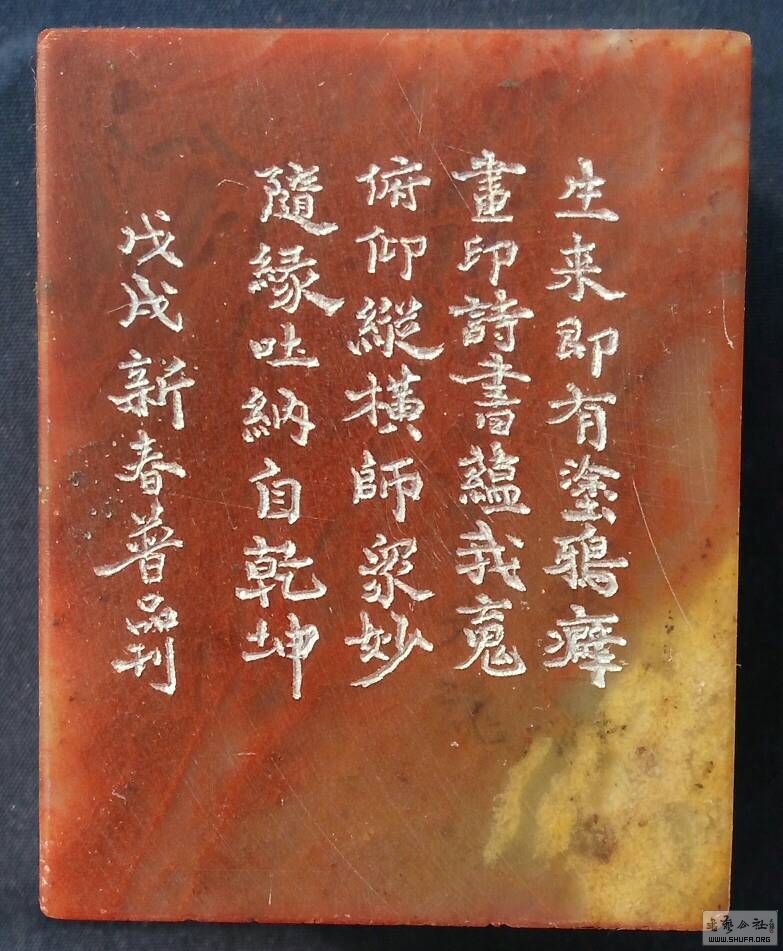 生来即有塗鴉癖
畫印詩書蘊我寬
俯仰縱横師衆妙
隨緣吐納自乾坤
戊戌新春普品刊
WWW.SHUFA.ORG